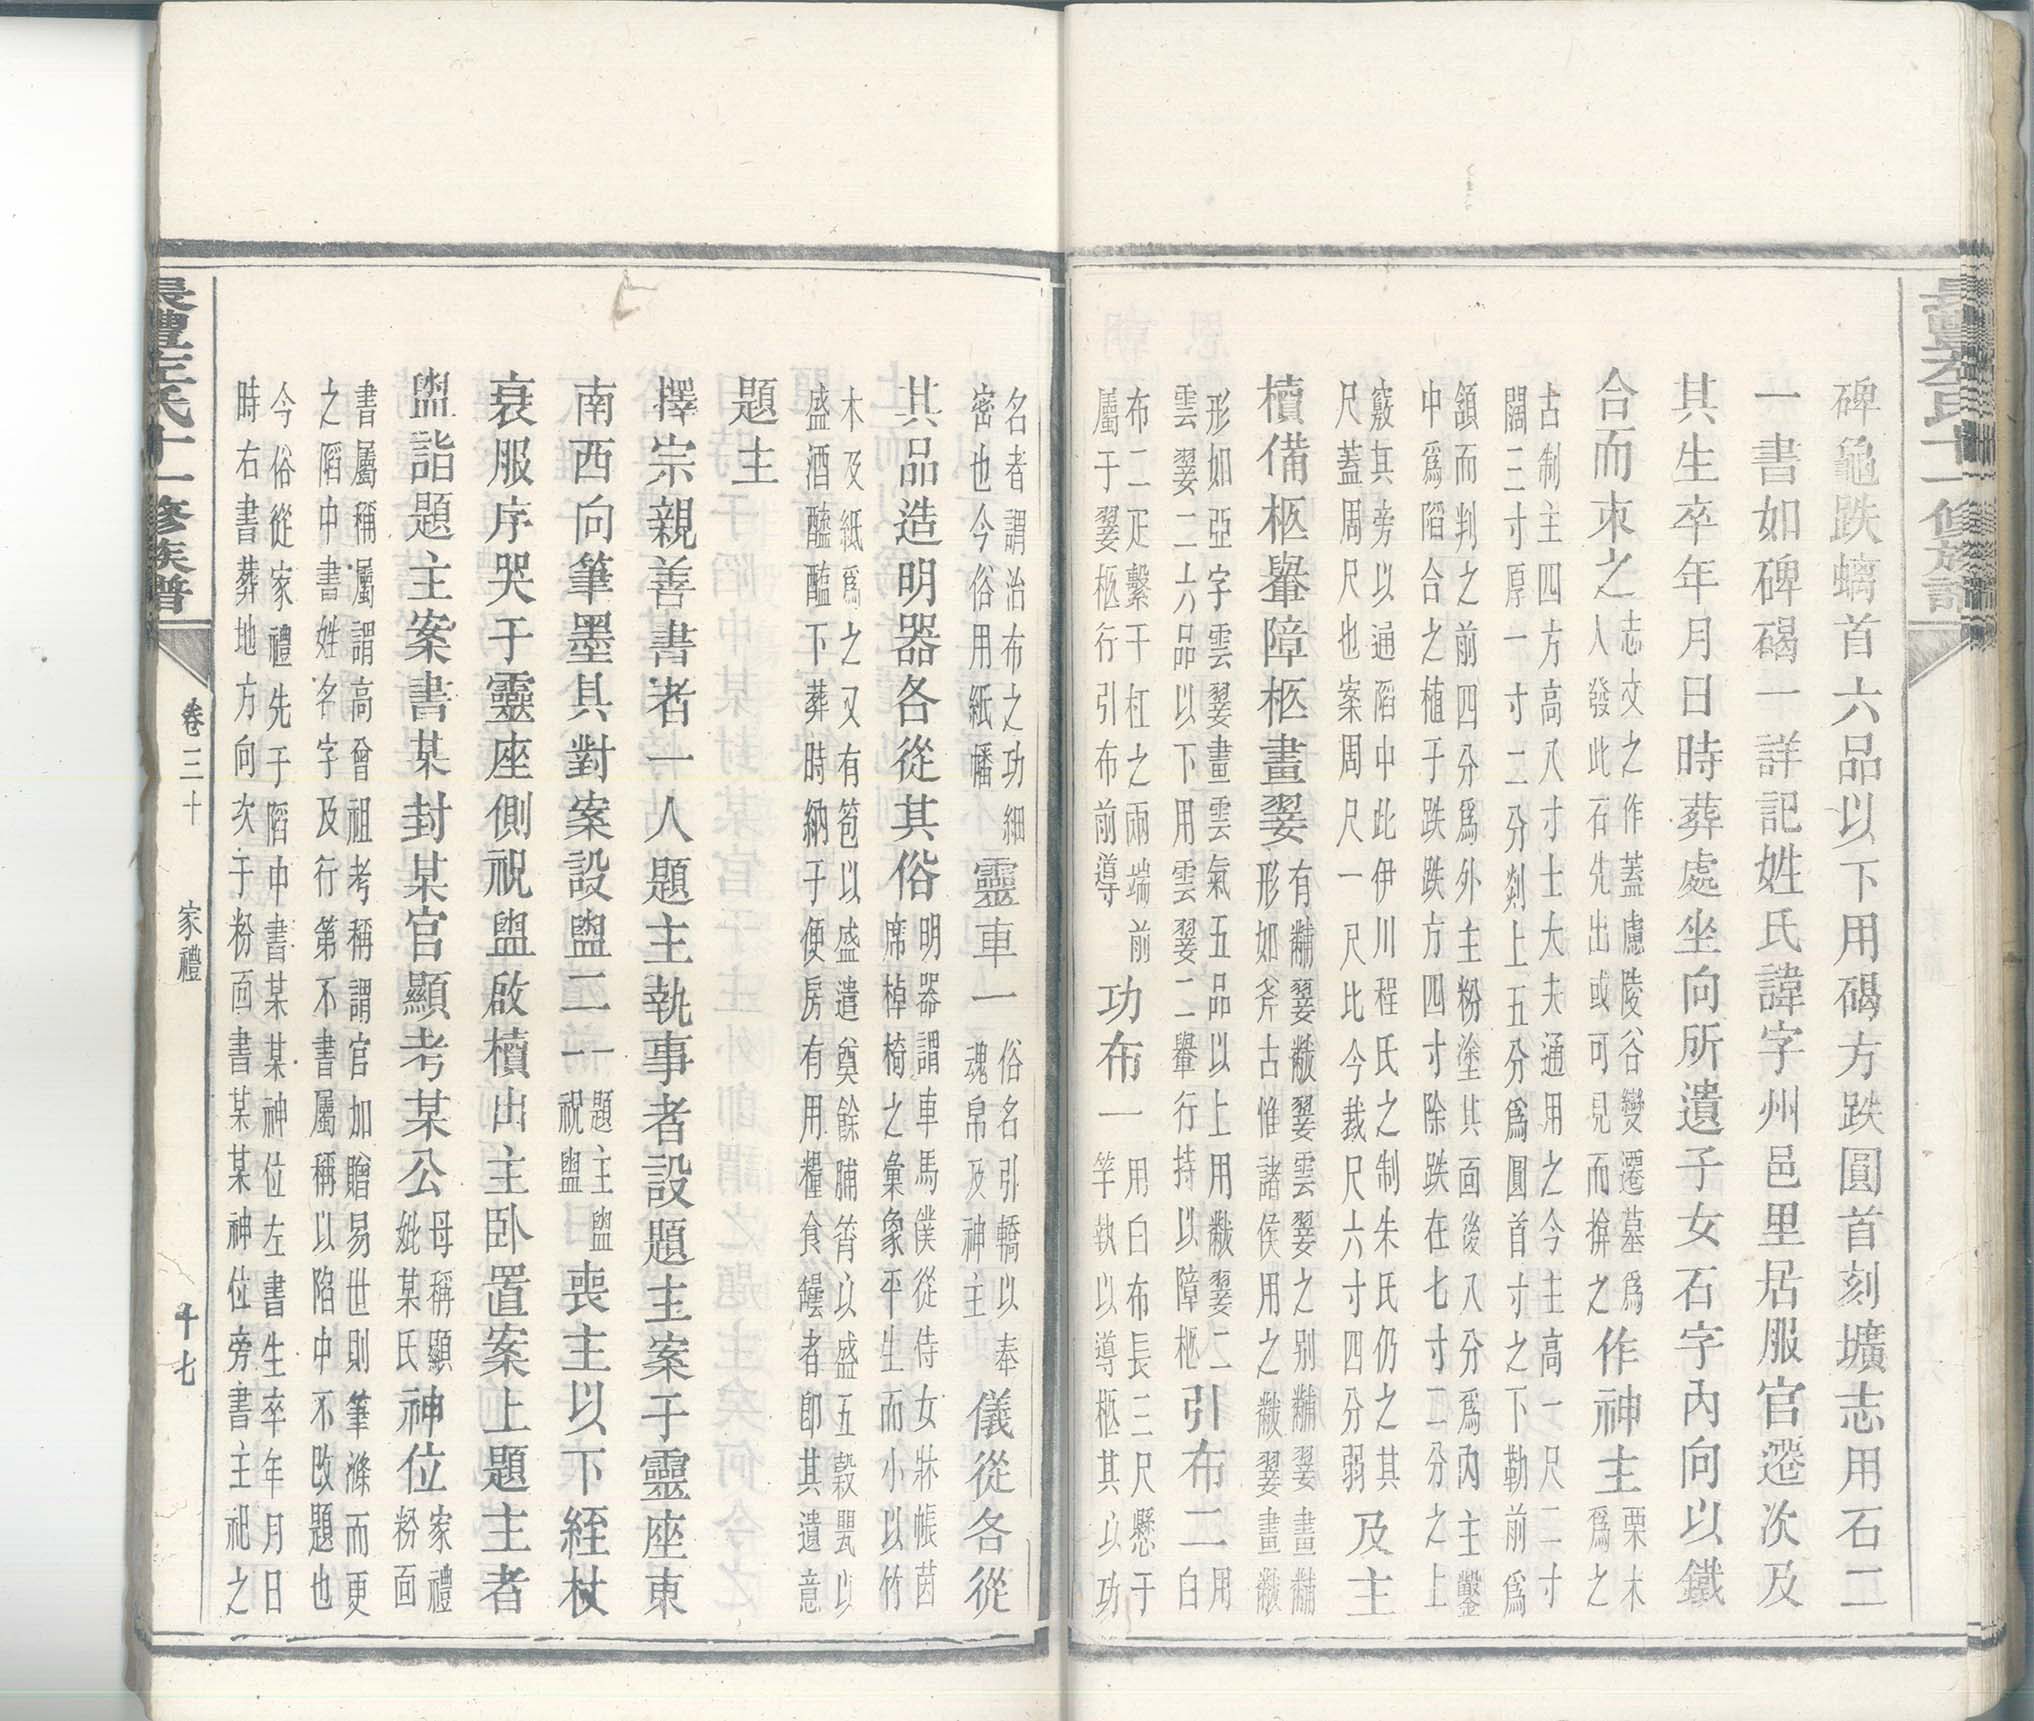 碑龜趺螭首六品以下用碣方趺圓首刻壙志用石二
一書如碑碣一詳記姓氏諱字州邑里居服官遷次及
其生卒年月日時葬處坐向所遺子女石字內向以鐵
合而朿之
志文之作蓋慮陵谷變遷墓爲
人發此石先出或可見而揜之
作神主
栗木
爲之
古制主四方高八寸士大夫通用之今主高一尺二寸
闊三寸厚一寸二分剡上五分爲圓首寸之下勒前爲
頷而判之前四分爲外主粉塗其面後八分爲內主鑿
中爲陷合之植于趺趺方四寸除趺在七寸二分之上
竅其旁以通陷中此伊川程氏之制朱氏仍之其
尺蓋周尺也案周尺一尺比今裁尺六寸四分弱
及主
櫝備柩轝障柩畫翣
有黼翣黻翣雲翣之別黼翣畫黼
形如斧古惟諸侯用之黻翣畫黻
形如亞字雲翣畫雲氣五品以上用黻翣二
雲翣二六品以下用雲翣二轝行持以障柩
引布二
用
白
布二疋繫于杠之兩端前
屬于翣柩行引布前導
功布一
用白布長三尺懸于
竿執以導柩其以功
名者謂治布之功細
密也今俗用紙幡
靈車一
俗名引轎以奉
魂帛及神主
儀從各從
其品造明器各從其俗
明器謂車馬僕從侍女牀帳茵
席棹椅之彙象平生而小以竹
木及紙爲之又有苞以盛遣奠餘脯筲以盛五穀甖瓦以
盛酒醯醢下葬時納于便房有用糧食罎者卽其遺意
題主
擇宗親善書者一人題主執事者設題主案于靈座東
南西向筆墨具對案設盥二
一題主盥
一祝盥
喪主以下絰杖
衰服序哭于靈座側祝盥啟櫝出主卧置案上題主者
盥詣題主案書某封某官顯考某公
母稱顯
妣某氏
神位
家禮
粉面
書屬稱屬謂高曾祖考稱謂官如贈易世則筆滌而更
之陷中書姓名字及行第不書屬稱以陷中不改題也
今俗從家禮先于陷中書某某神位左書生卒年月日
時右書葬地方向次于粉面書某某神位旁書主祀之
卷三十
家禮
十七